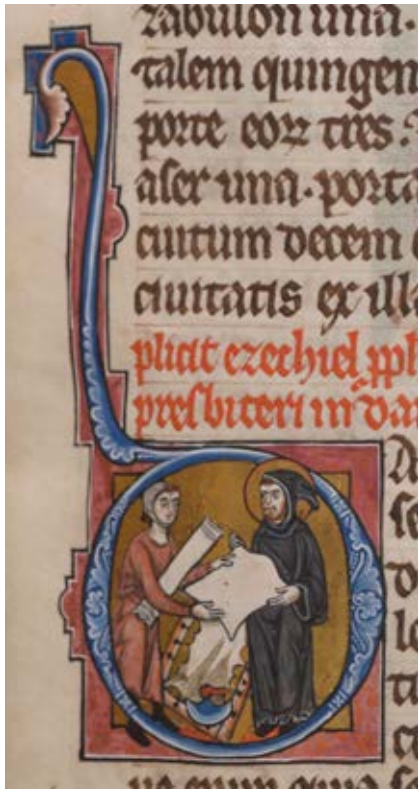 zabulon una.
talem quingen
porte eoꝝ tres:
aser una. porta
cuitum decem
ciuitatis ex illa
plicit ezechiel pph
presbiteri in da
lo
ti